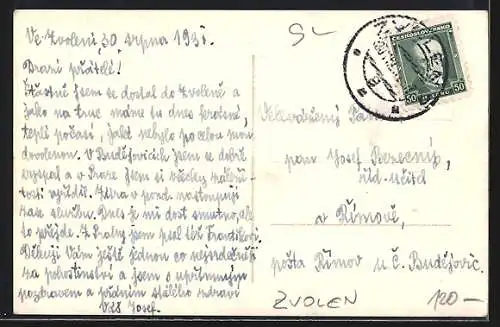 Ve Zvoleni, 30 srpna 1931.
Drazí přátelé!
Šťastně jsem se dostal do Zvolena a
jako na truc máme tu dnes krásné,
teplé počasí, jaké nebylo po celou mou
dovolenou. V Budějovicích jsem se dobře
vyspal a v Praze jsem si všecky záleži-
tosti vyřídil. Zítra v pond. nastoupuji
zase službu. Dnes je mi dost smutno, ale
to přejde. Z Prahy jsem psal též Frantíkovi.
Děkuji Vám ještě jednou co nejsrdečněji
za pohostinství a jsem s upřímným
pozdravem a přáním stálého zdraví
Váš Josef.
SL
ČESKOSLOVENSKO
50 50
Velevážený Pán
pan Josef Bezecný,
říd. učitel
v Římově,
pošta Římov u Č. Budějovic.
ZVOLEN
120-